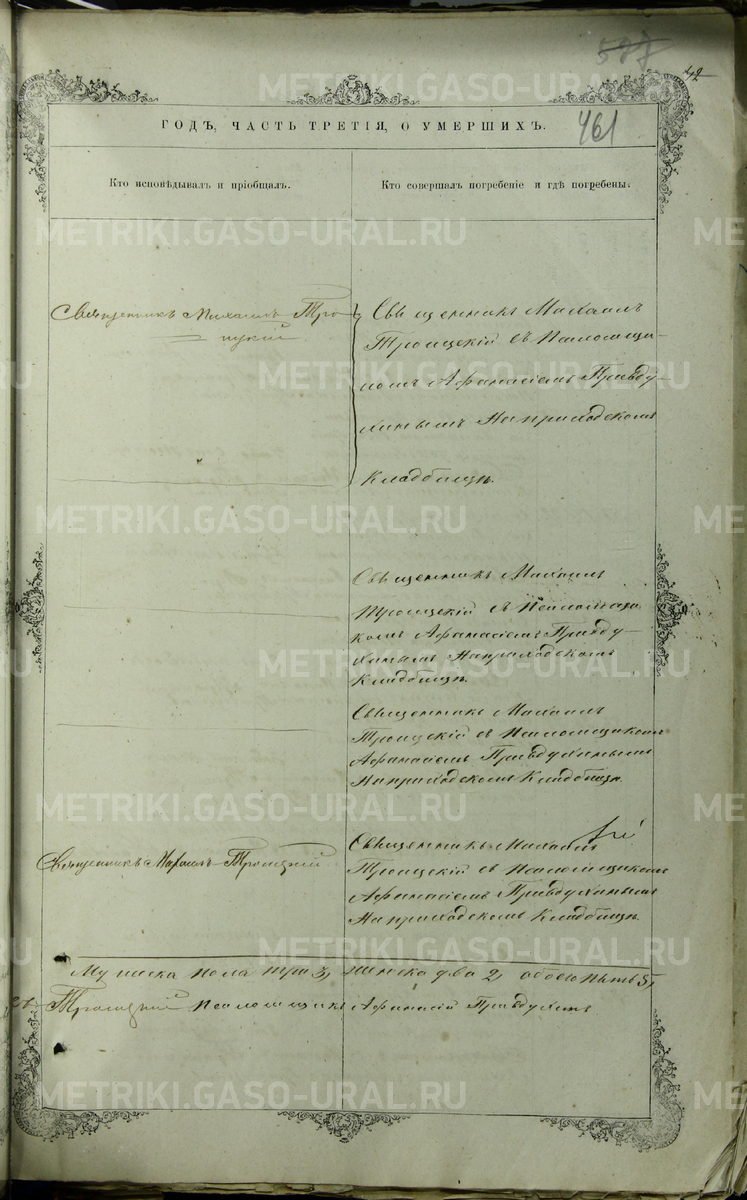 587
42
461
ГОДЪ, ЧАСТЬ ТРЕТІЯ, О УМЕРШИХЪ.
Кто исповѣдывалъ и пріобщалъ.
Кто совершалъ погребеніе и гдѣ погребены.
Священникъ Михаилъ Тро-
ицкій
Священникъ Михаилъ
Троицкій съ Псаломщи-
комъ Афанасіемъ Правду-
хинымъ На приходскомъ
Кладбищѣ.
Священникъ Михаилъ
Троицкій съ Псаломщи-
комъ Афанасіемъ Правду-
хинымъ На приходскомъ
Кладбищѣ.
Священникъ Михаилъ
Троицкій съ Псаломщикомъ
Афанасіемъ Правдухинымъ
На приходскомъ Кладбищѣ.
Священникъ Михаилъ Троицкій
Священникъ Михаилъ
Троицкій съ Псаломщикомъ
Афанасіемъ Правдухинымъ
На приходскомъ Кладбищѣ.
Мужеска пола три 3, женска два 2, обоего пять 5,
Троицкій Псаломщикъ Афанасій Правдухинъ
METRIKI.GASO-URAL.RU